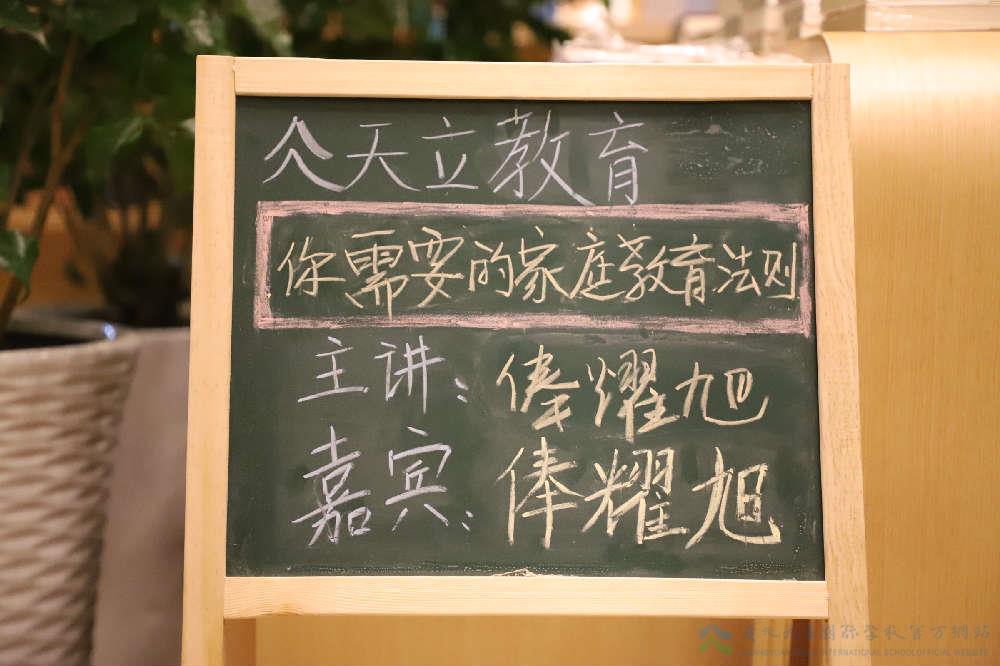 天立教育
你需要的家庭教育法则
主讲：俸耀旭
嘉宾：俸耀旭
国际学校官方網站
INTERNATIONAL SCHOOL OFFICIAL WEBSITE